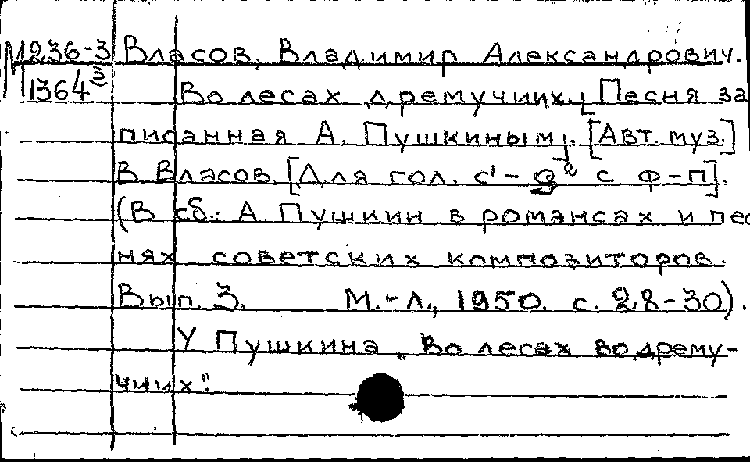 М236-3 Власов, Владимир Александрович.
П1364³ Во лесах дремучиих. [Песня за
писанная А. Пушкиным]. [Авт. муз.]
В Власов. [Для гол. с¹- g² с ф-п].
(В сб.: А Пушкин в романсах и пес
нях советских композиторов.
Вып. 3. М.-Л., 1950. с. 28-30).
У Пушкина „Во лесах во дрему-
чиих".